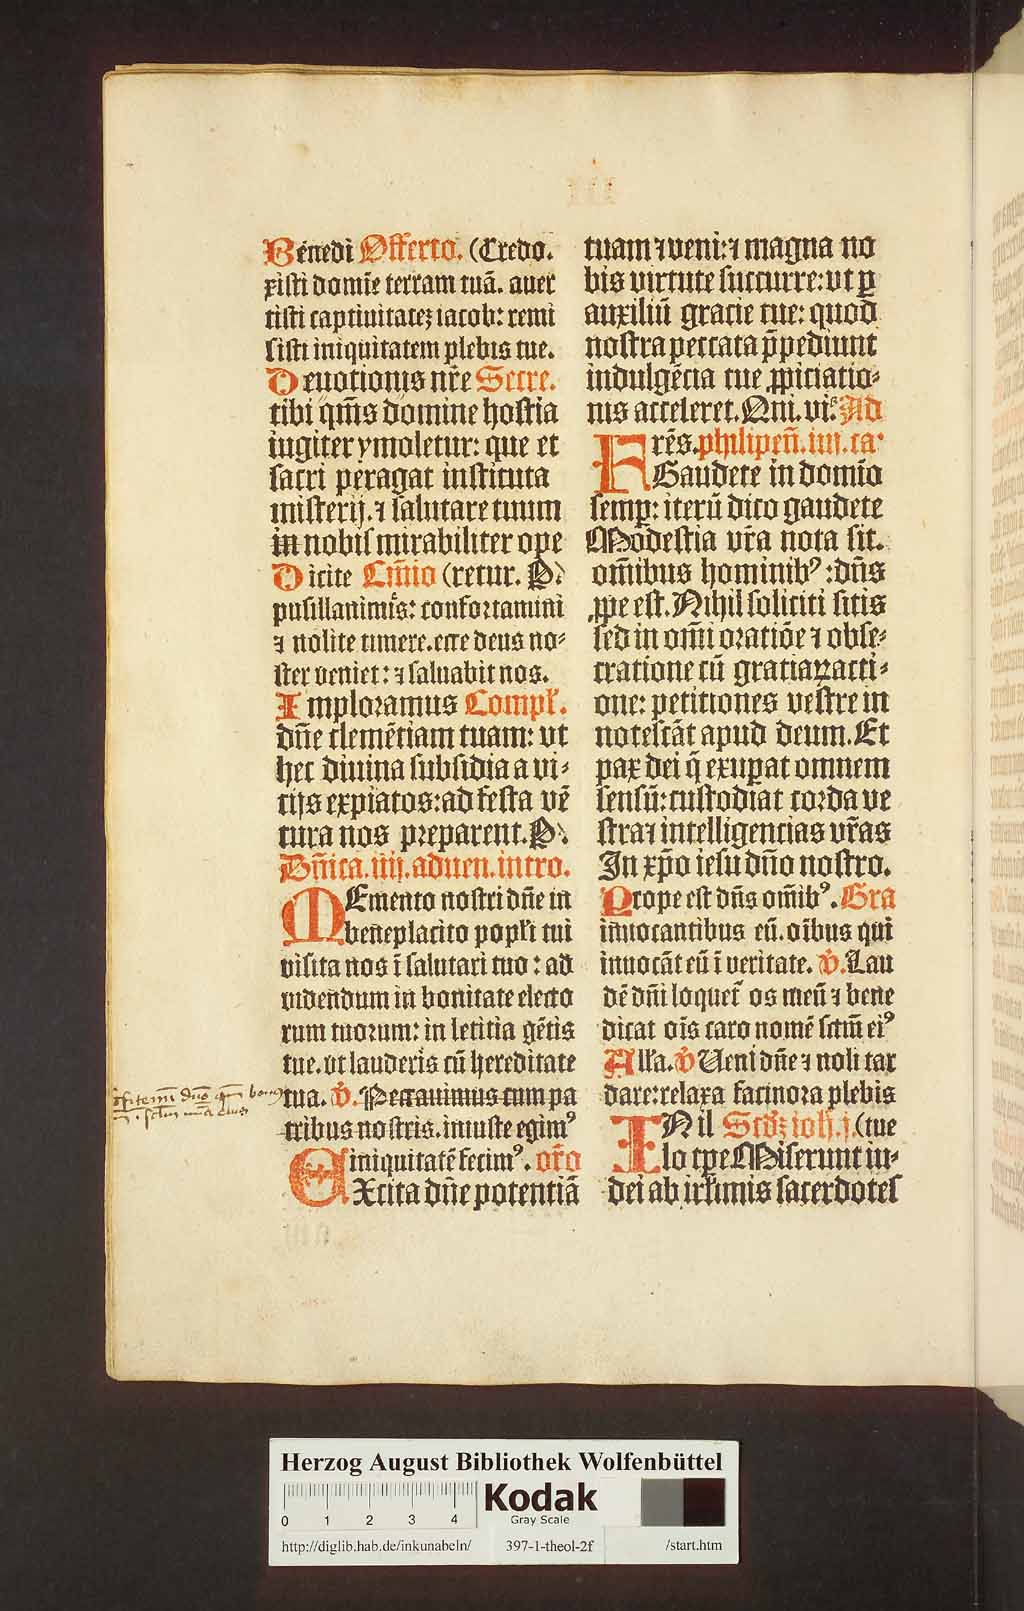 Benedi Offerto. (Credo.
xisti domīe terram tuā. auer
tisti captiuitatēȝ iacob: remi
sisti iniquitatem plebis tue.
Deuotionis nr̄e Secre.
tibi qm̄s domine hostia
iugiter ymoletur: que et
sacri peragat instituta
misterij. ⁊ salutare tuum
in nobis mirabiliter ope
Dicite Cōm̄io (retur. P.
pusillanimis: confortamini
⁊ nolite timere. ecce deus no⸗
ster veniet: ⁊ saluabit nos.
Imploramus Compl̄.
dn̄e clemētiam tuam: vt
hec diuina subsidia a vi⸗
cijs expiatos: ad festa vē
tura nos preparent. P.
Dn̄ica. iiij. aduen. intro.
MEmento nostri dn̄e in
beneplacito popl̄i tui
visita nos ī salutari tuo: ad
videndum in bonitate electo
rum tuorum: in leticia gētis
tue. vt lauderis cū hereditate
tua. v̄. Peccauimus cum pa
tribus nostris. iniuste egimꝰ
iniquitatē fecimꝰ. or̄o
EXcita dn̄e potentiā
tuam ⁊ veni: ⁊ magna no
bis virtute succurre: vt ꝑ
auxiliū gracie tue: quod
nostra peccata p̄pediunt
indulgēcia tue ꝓpiciatio⸗
nis acceleret. Qui. vi. Ad
Frēs. philipeñ. iiij. ca.
Gaudete in domīo
semꝑ: iterū dico gaudete
Modestia vr̄a nota sit.
om̄ibus hominibꝰ: dn̄s
ꝓpe est. Nihil soliciti sitis
sed in om̄i oratiōe ⁊ obse⸗
cratione cū gratiaꝝ acti⸗
one: petitiones vestre in
notescāt apud deum. Et
pax dei q̄ exuꝑat omnem
sensū: custodiat corda ve
stra ⁊ intelligencias vr̄as
In xp̄o iesu dn̄o nostro.
Prope est dn̄s om̄ibꝰ. Gra
inuocantibus eū. oībus qui
inuocāt eū ī veritate. v̄. Lau
dē dn̄i loquet̄ os meū ⁊ bene
dicat oīs caro nomē sctm̄ eiꝰ
All̄a. v̄ Ueni dn̄e ⁊ noli tar
dare: relaxa facinora plebis
INil Scd̄ȝ ioh̄. j. (tue
lo tꝑe Miserunt iu⸗
dei ab irl̄imis sacerdotes
Herzog August Bibliothek Wolfenbüttel
0 1 2 3 4
Kodak
Gray Scale
http://diglib.hab.de/inkunabeln/ 397-1-theol-2f /start.htm